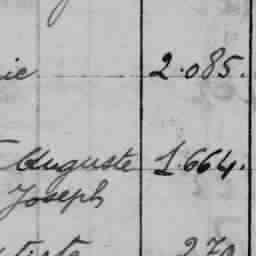 ie 2.085.
Auguste 1.664.
Joseph
tiste 270